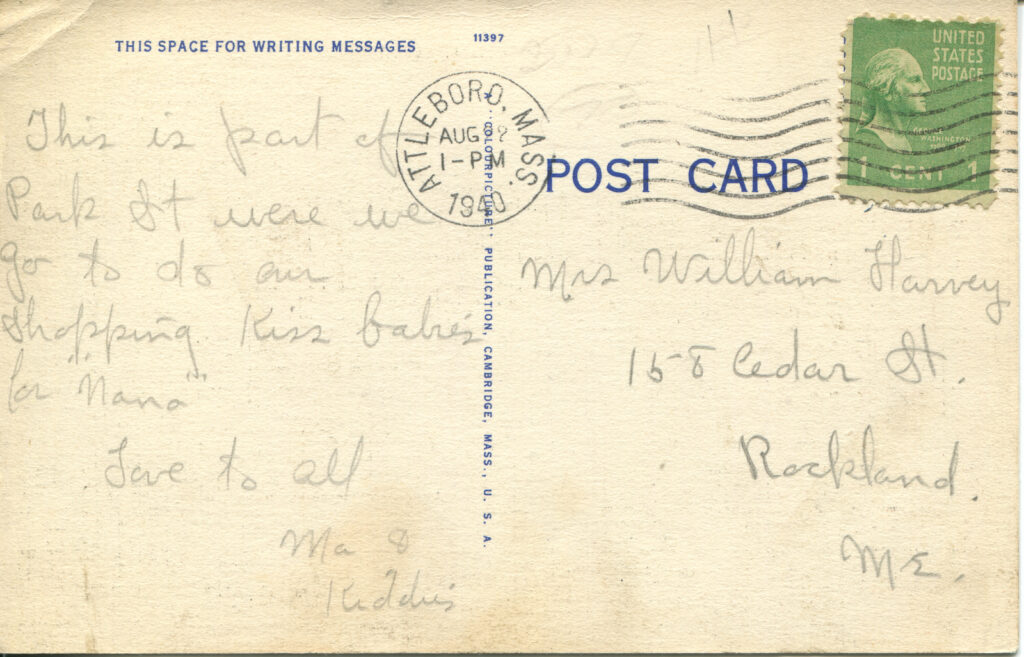 THIS SPACE FOR WRITING MESSAGES
11397
This is part of
Park St were we
go to do our
shopping. Kiss babies
for "Nana"
Love to all
Ma &
Kiddies
ATTLEBORO, MASS.
AUG 2
1-PM
1940
"COLOURPICTURE" PUBLICATION, CAMBRIDGE, MASS., U. S. A.
POST CARD
UNITED
STATES
POSTAGE
GEORGE
WASHINGTON
1 CENT 1
Mrs William Harvey
158 Cedar St.
Rockland.
ME.